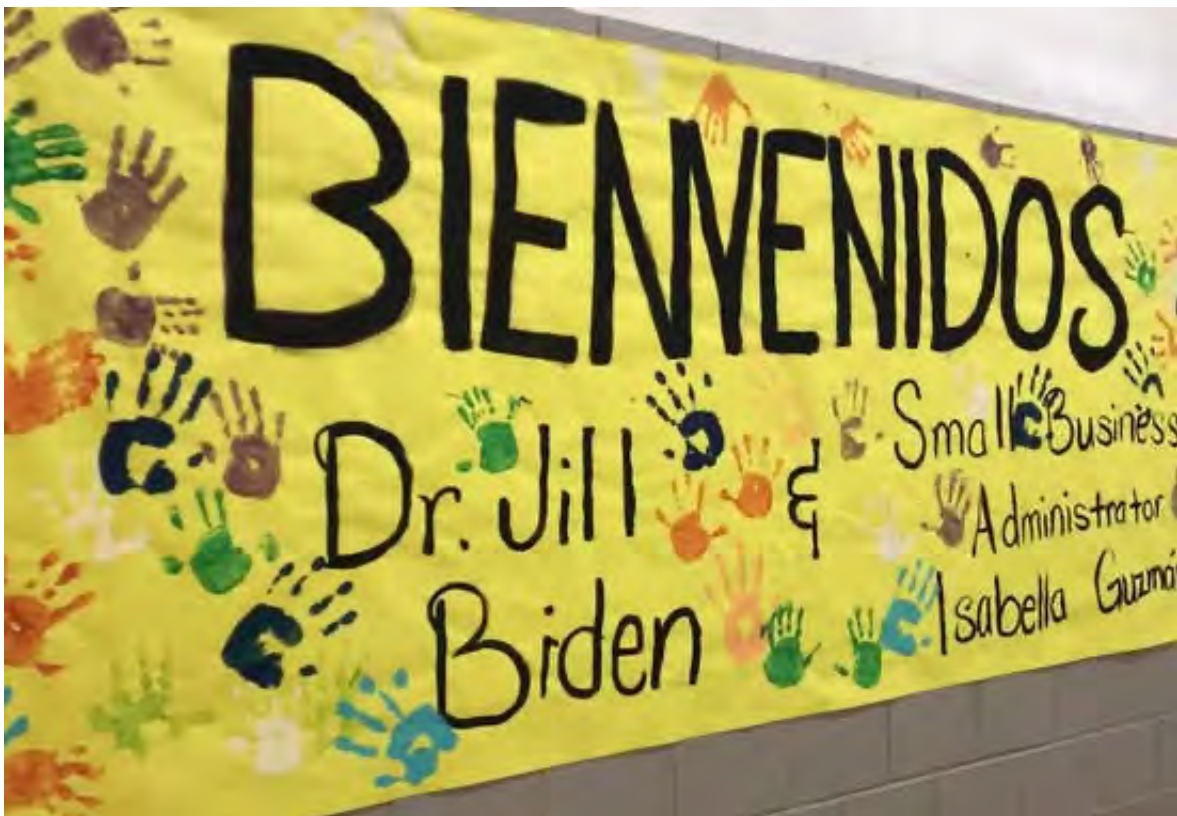 BIENVENIDOS
Dr. Jill
Biden
&
Small Business
Administrator
Isabella Guzmá